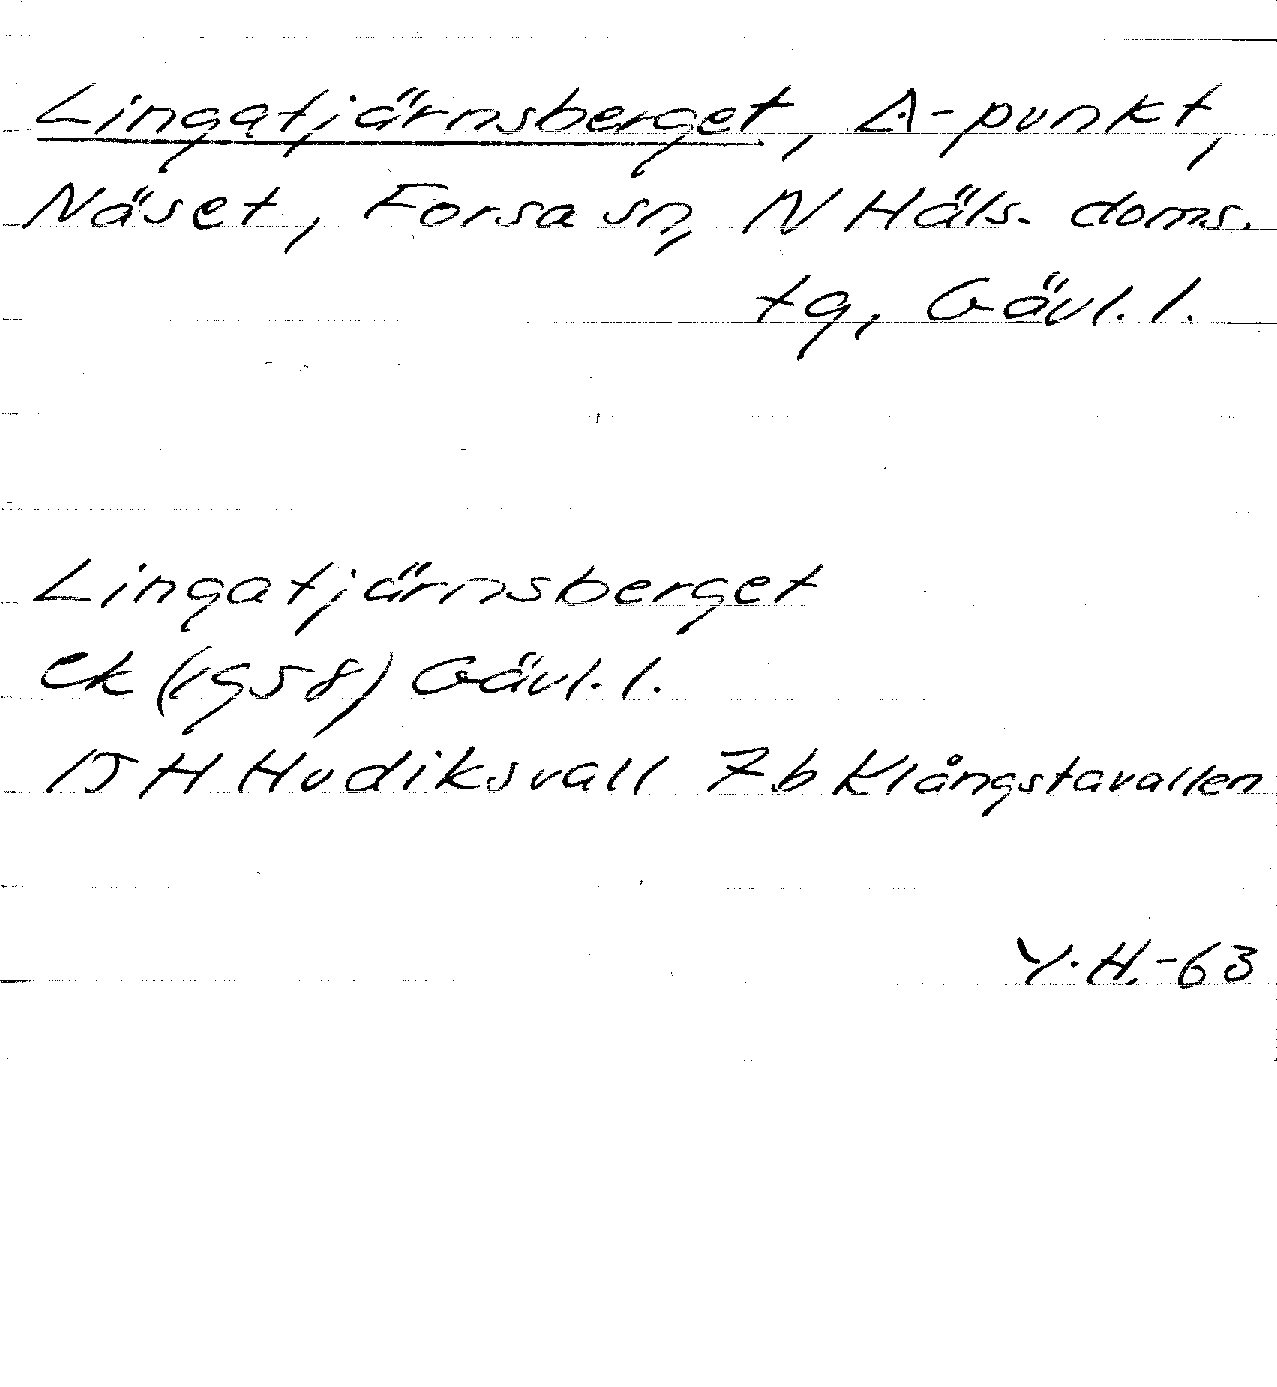 Lingatjärnsberget, A-punkt,
Näset, Forsa sn, N Häls. doms.
tg, Gävl. l.
Lingatjärnsberget
ek (1958) Gävl. l.
15 H Hudiksvall 7b Klångstavallen
Y.H.-63